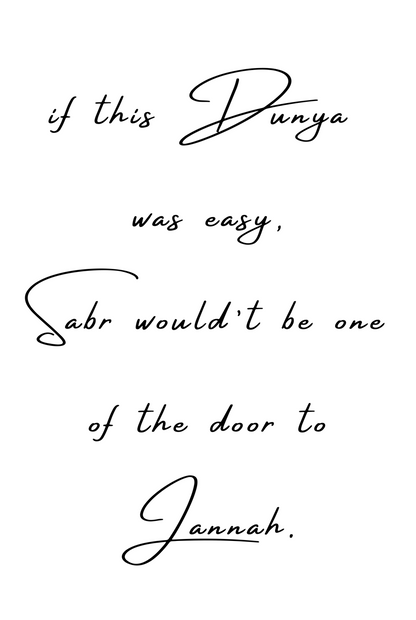 if this Dunya
was easy,
Sabr would't be one
of the door to
Jannah.